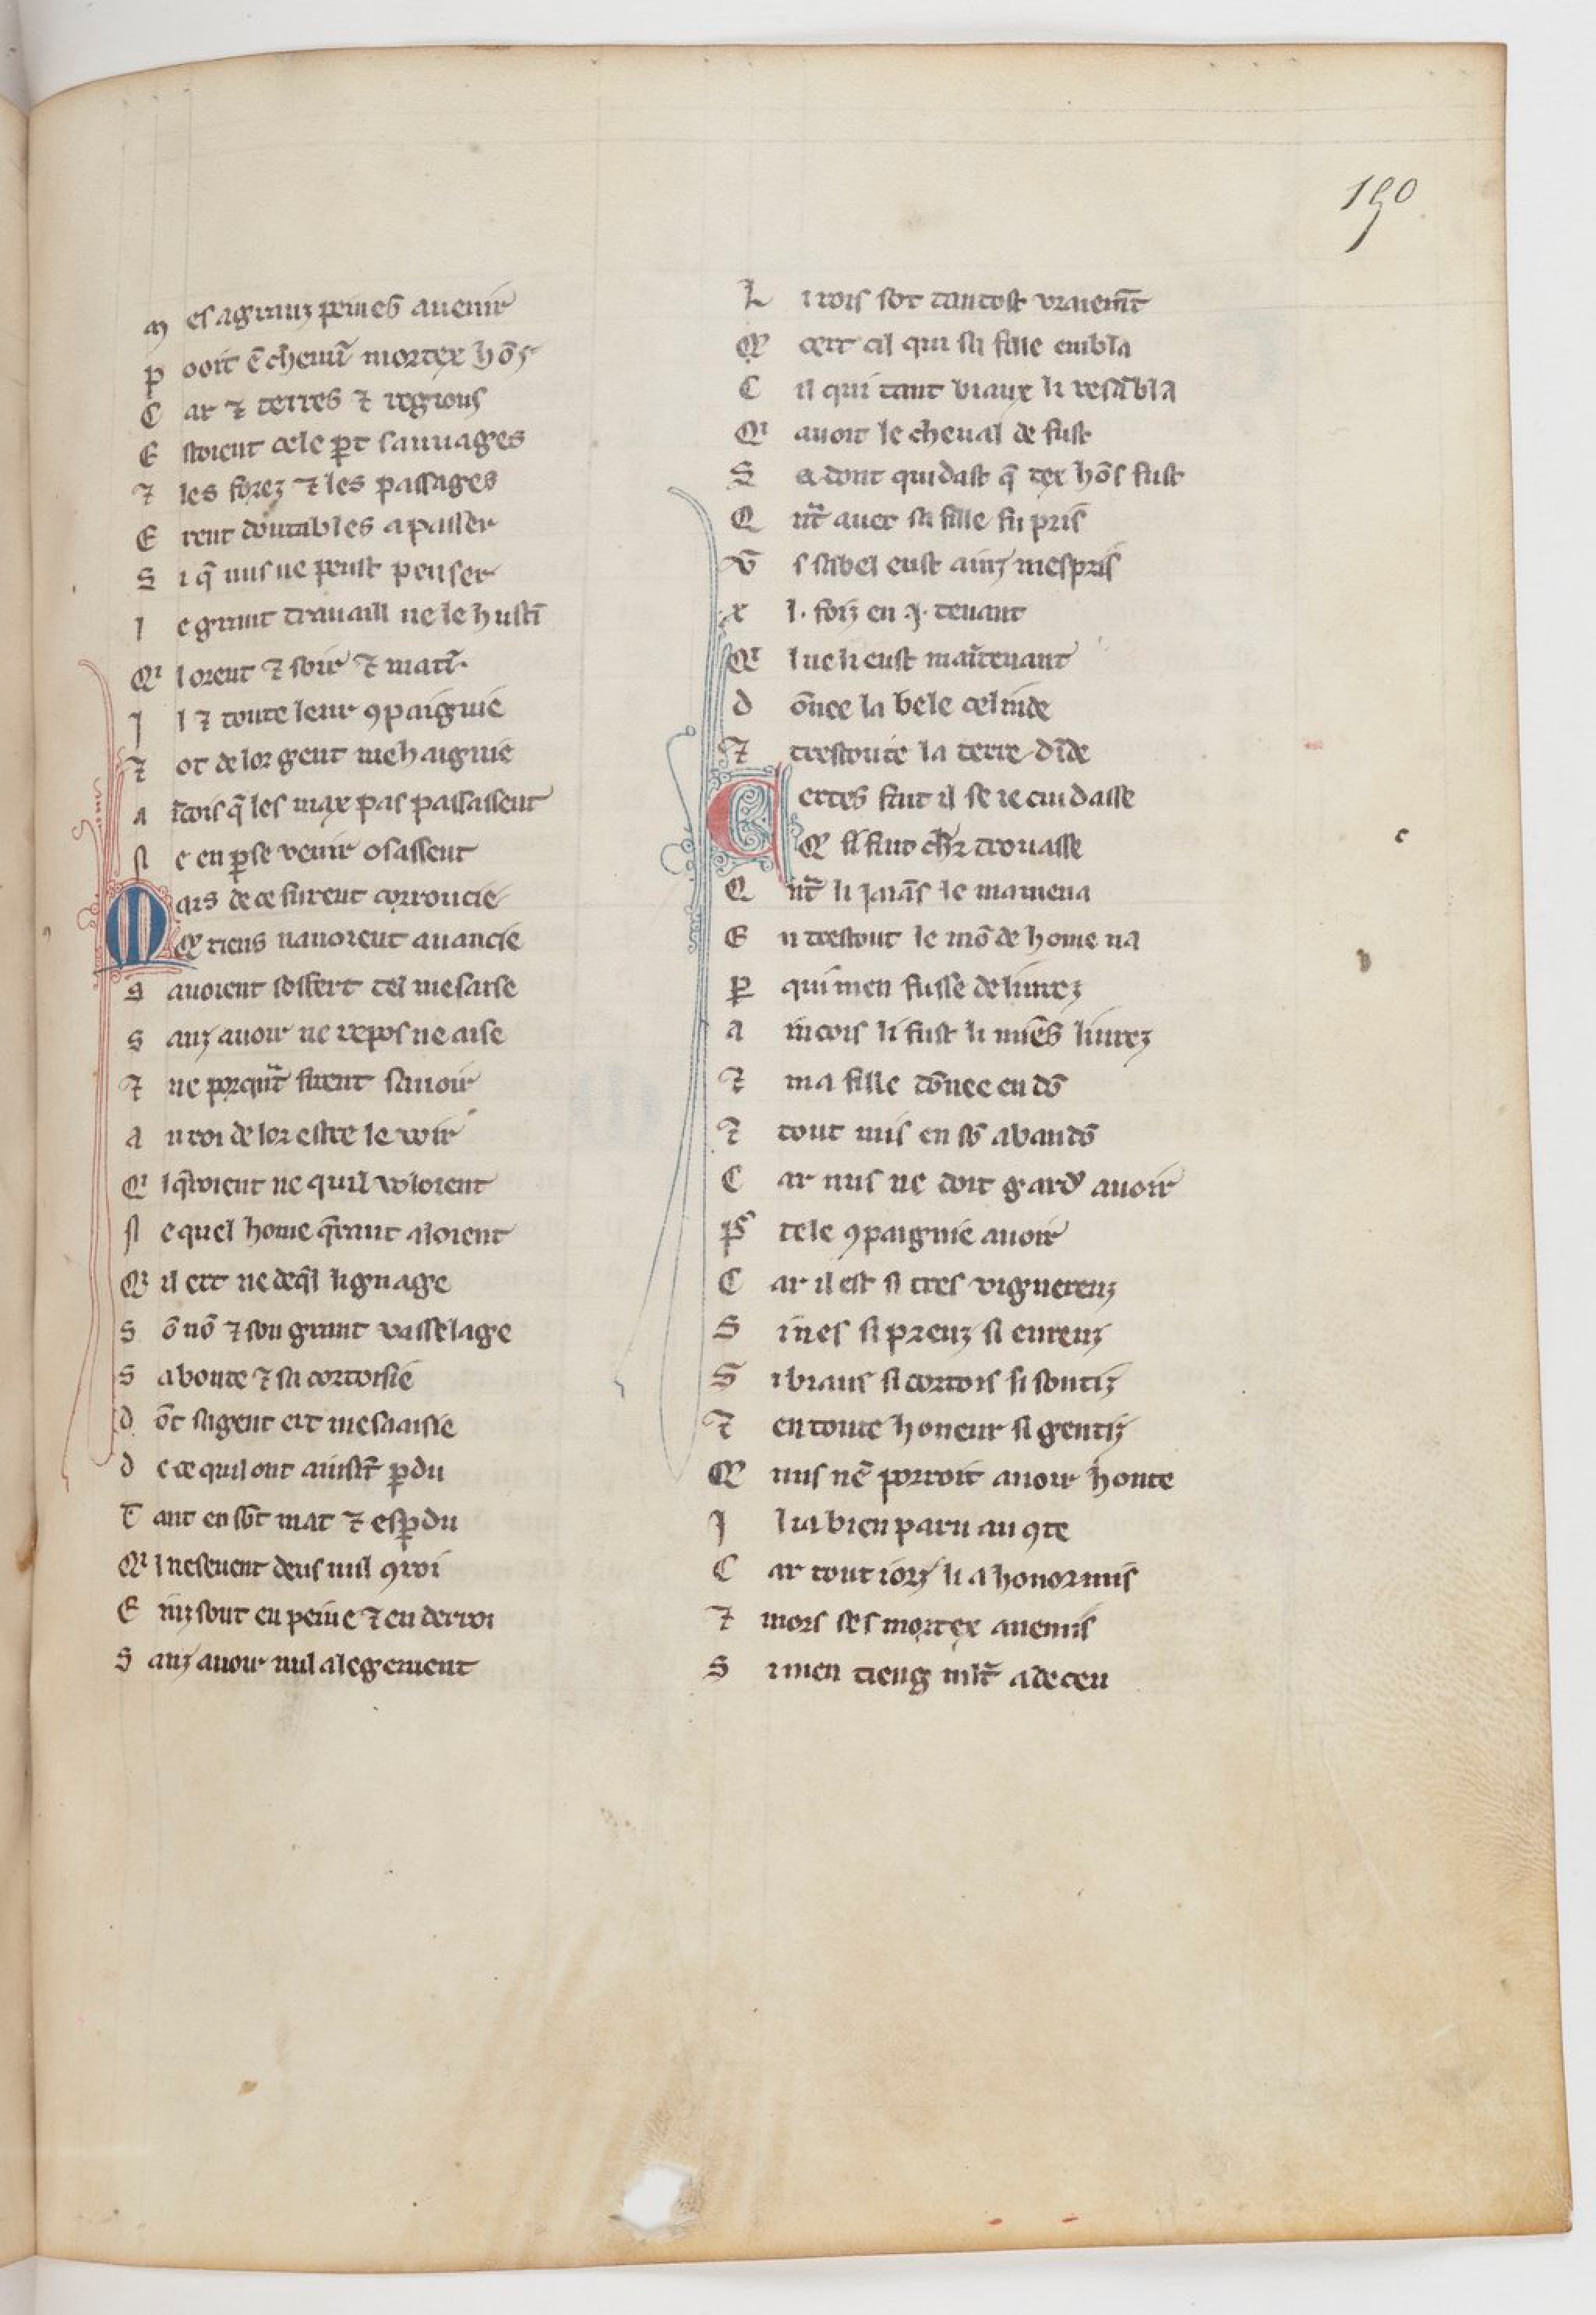 190
M es a granz peines auenir
P ooit ē chemī mortex hōs
C ar ⁊ terres ⁊ regions
E stoient cele ꝑt sauuages
⁊ les forez ⁊ les passages
E rent doutables a passer
S i q̄ nus ne peust penser
L e grant trauaill ne le hustī
Qͥ l orent ⁊ soir ⁊ matī
I l ⁊ toute leur ꝯpaignie
⁊ ot de lor gent mehaignie
A īcois q̄ les max pas passassent
N e en ꝑse venir osassent
Mars de ce furent corroucie
Qe riens nauoient auancie
S auoient soffert tel mesaise
S anz auoir ne repos ne aise
⁊ ne porquāt firent sauoir
A u roi de lor estre le voir
Qͥ l q̄roient ne quil voloient
N e quel home q̄rant aloient
Qͥ il ert ne de q̄l lignage
S ō nō ⁊ son grant vasselage
S a bonte ⁊ sa cortoisie
D ōt sa gent ert mesaaisie
D e ce quil ont ainsīt ꝑdu
T ant en sōt mat ⁊ esꝑdu
Qͥ l ne seuent deus nul ꝯroi
E inz sont en peine ⁊ en derroi
S anz auoir nul alegement
L i rois sot tantost vraiemēt
Qe cert cil qui sa fille embla
C il qui tant biaux li resābla
Qͥ auoit le cheual de fust
S e dont quidast q̄ tex hōs fust
Q nt̄ auec sa fille fu pris
V̄ s sabel eust ainz mespris
X l. foiz en .j. tenant
Qͥ l ne li eust maītenant
D ōnee la bele celinde
⁊ trestoute la terre dīde
Certes fait il se ie cuidasse
Qe si fait chr̄ trouasse
Q nt̄ li jaiās le mamena
E n trestout le mōde home na
ꝑ qui men fusse deliurez
A incois li fust li miēs liurez
⁊ ma fille dōnee en dō
⁊ tout mis en sō abandō
C ar nus ne doit gard' auoir
Pͦ tele ꝯpaignie auoir
C ar il est si tres vignereuz
S ines si preuz si eureuz
S i biaus si cortois si soutiz
⁊ en toute honeur si gentiz
Qe nus nē porroit auoir honte
I l i a bien paru au ꝯte
C ar tout iorz li a honor mis
⁊ mors ses mortex anemis
S i men tieng mlt̄ a deceu